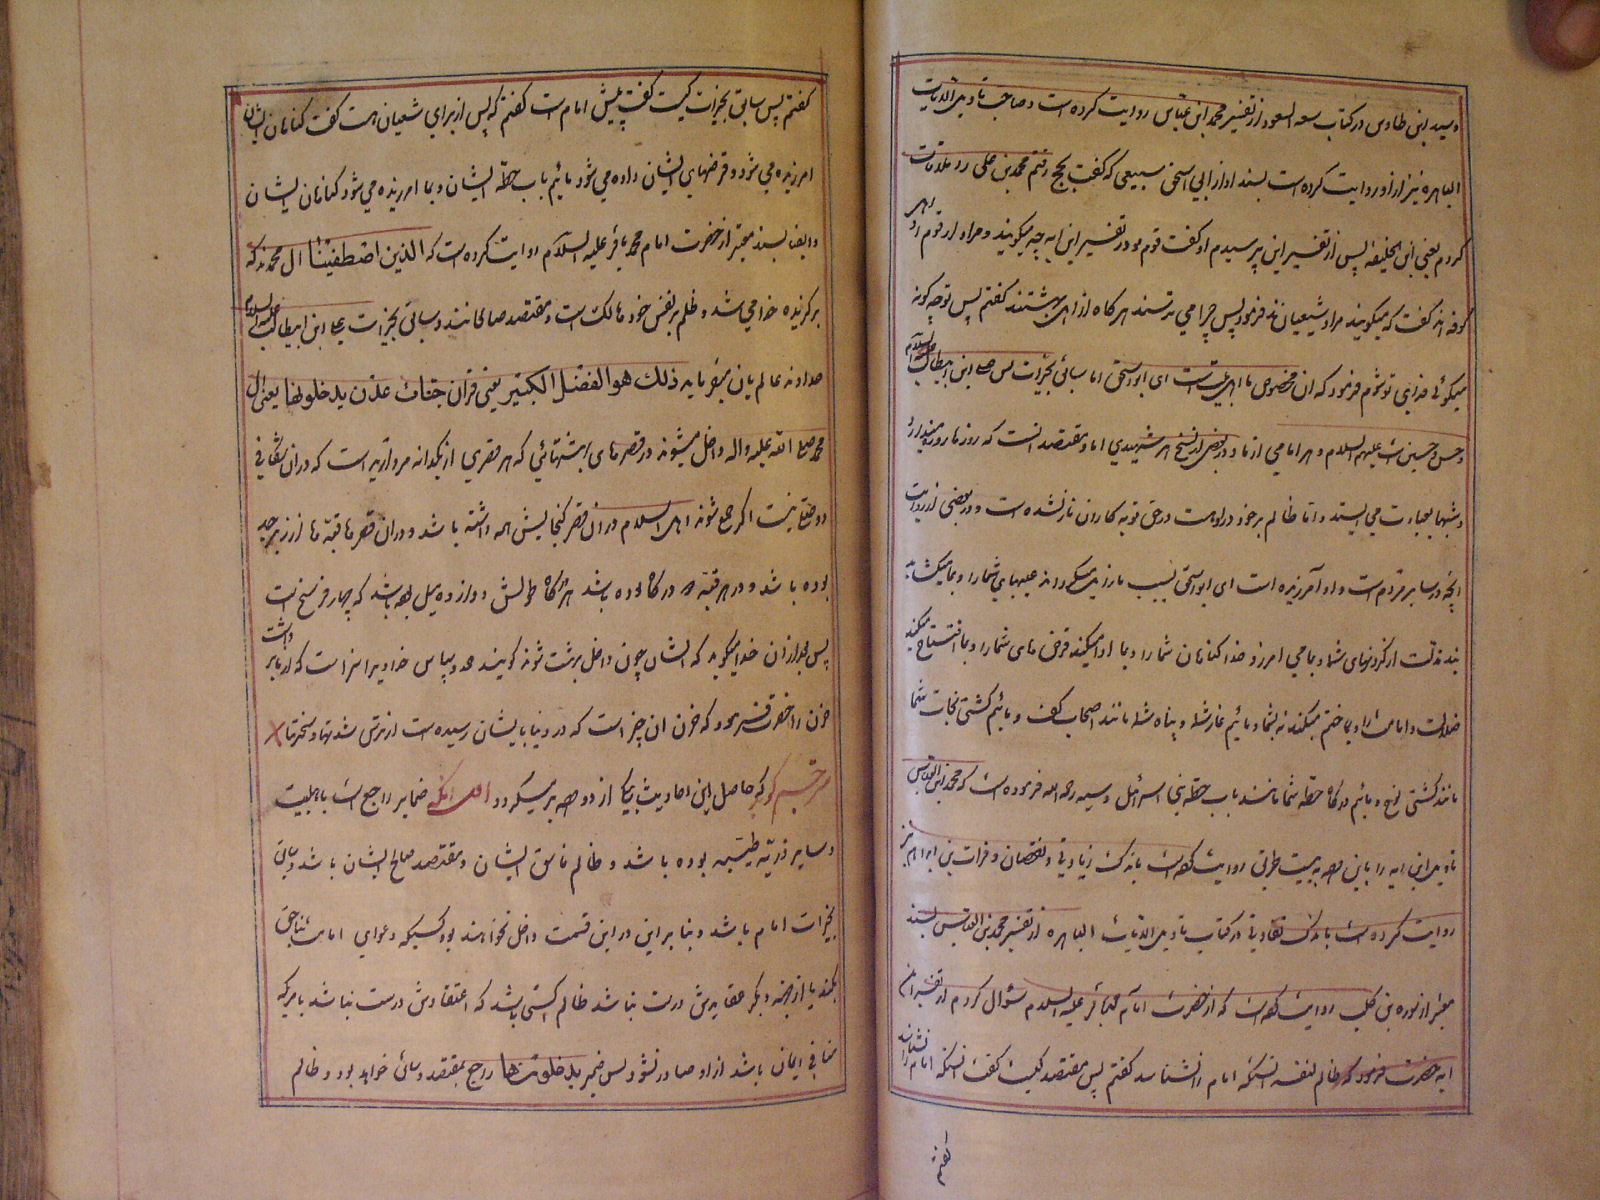 و سید ابن طاوس در کتاب سعد السعود از تفسیر محمد ابن عباس روایت کرده است و صاحب تاویل الایات
الباهره نیز از او روایت کرده است بسند او از ابی اسحق سبیعی که گفت بحج رفتم محمد بن علی را ملاقات
کردم یعنی ابن الحنفیه پس از تفسیر این پرسیدم او گفت قوم تو در تفسیر این ایه چه میگویند و مراد از قوم او اهل
کوفه اند گفت که میگویند مراد شیعیانند فرمود پس چرا می ترسند هر کاه از اهل بهشتند گفتم پس تو چه کونه
میگوئی فدای تو شوم فرمود که ان مخصوص ما اهل بیت است ای ابو اسحق اما سابق بخیرات پس علی ابن ابیطالب علیه السلام
و حسن و حسین است علیهم السلام و هر امامی از ما و در بعضی از نسخ هر شهیدی اما مقتصد انست که روزها روزه میدارد
و شبها بعبادت می ایستد و اما ظالم بر خود در او هست در حق توبه کاران نازل شده است و در بعضی از روایت
انچه در سایر مردم است و او آمرزیده است ای ابو اسحق بسبب ما زایل میکرداند عیبهای شمارا و بما میکشاید
بند مذلت از کردنهای شما و بما می امرزد خدا کناهان شما را و بما ادا میکند قرض های شما را و بما افتتاح میکند
و بما ختم میکند نه بشما و مائیم غار شما و پناه شما مانند اصحاب کهف و مائیم کشتی نجات شما
مانند کشتی نوح و مائیم درکاه حطه شما مانند باب حطه بنی اسرائیل و سید رحمه الله فرموده است که محمد بن العباس
تاویل این ایه را باین وجه به بیست طریق روایت کرده است باندک زیادتی و نقصان و فرات بن ابراهیم نیز
روایت کرده است باندک تفاوتی و در کتاب تاویل الایات الباهره از تفسیر محمد بن العباس بسند
معتبر از سوره بن کلیب روایت کرده است که از حضرت امام محمد باقر علیه السلام سؤال کردم از تفسیر این
ایه حضرت فرمود که ظالم لنفسه انست که امام را نشناسد گفتم پس مقتصد کیست گفت انست که امام را بشناسد
گفتم
گفتم پس سابق بخیرات کیست گفت پیش امام است گفتم که پس از برای شیعیان هست گفت کناهان ایشان
امرزیده می شود و قرضهای ایشان داده می شود مائیم باب حطّه ایشان و بما امرزیده می شود کناهان ایشان
و ایضا بسند معتبر از حضرت امام محمد باقر علیه السلام روایت کرده است که الذین اصطفینا ال محمدند که
برکزیده خدا می شد و ظلم بر نفس خود هالک است و مقتصد صالحانند و سابق بخیرات علی ابن ابیطالب علیه السلام
خداوند عالمیان میفرماید ذلك هو الفضل الکبیر یعنی قران جنات عدن یدخلونها یعنی ال
محمد صلی الله علیه واله داخل میشوند در قصرهای بهشتهائی که هر قصری از یکدانه مروارید است که دران شکافی
و وصلی نیست اکر جمع شوند اهل اسلام در ان قصر کنجایش همه داشته باشد و دران قصرها قبّه ها از زبرجد
بوده باشد و در هر قبّه دو درکاه بوده باشد هر درکاه طولش دوازده میل بوده باشد که چهار فرسخ است
پس بعد از ان خدا میکوید که ایشان چون داخل بهشت شوند کویند حمد و سپاس خداوندیرا سزاست که از ما برداشت
حزن را حضرت فرمود که حزن ان چیز است که در دنیا بایشان رسیده است از ترس شدتها و سختیها
مترجم کوید که حاصل این احادیث یکی از دو وجه بر میکردد اول انکه ضمایر راجع است باهلبیت
و سایر ذریّه طیبه بوده باشد و ظالم فاسق ایشان و مقتصد صالح ایشان باشد و سابق
بخیرات امام باشد و بنابر این در این قسمت داخل نخواهند بود کسیکه دعوای امامت بناحق
بکند یا از جهة دیکر عقایدش درست نباشد ظالم کسی باشد که اعتقادش درست نباشد یا مریکه
منافی ایمان باشد از او صادر نشود پس ضمیر یدخلونها راجع بمقتصد و سابق خواهد بود و ظالم